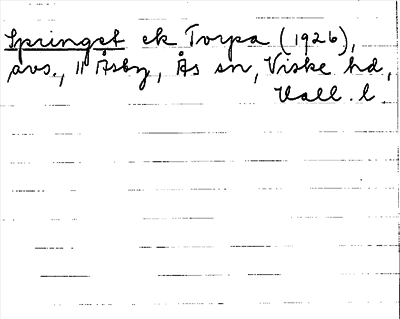 Springet ek Torpa (1926),
avs., 11 Åsby, Ås sn, Viske hd,
Hall. l